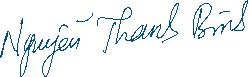 Nguyễn Thanh Bình